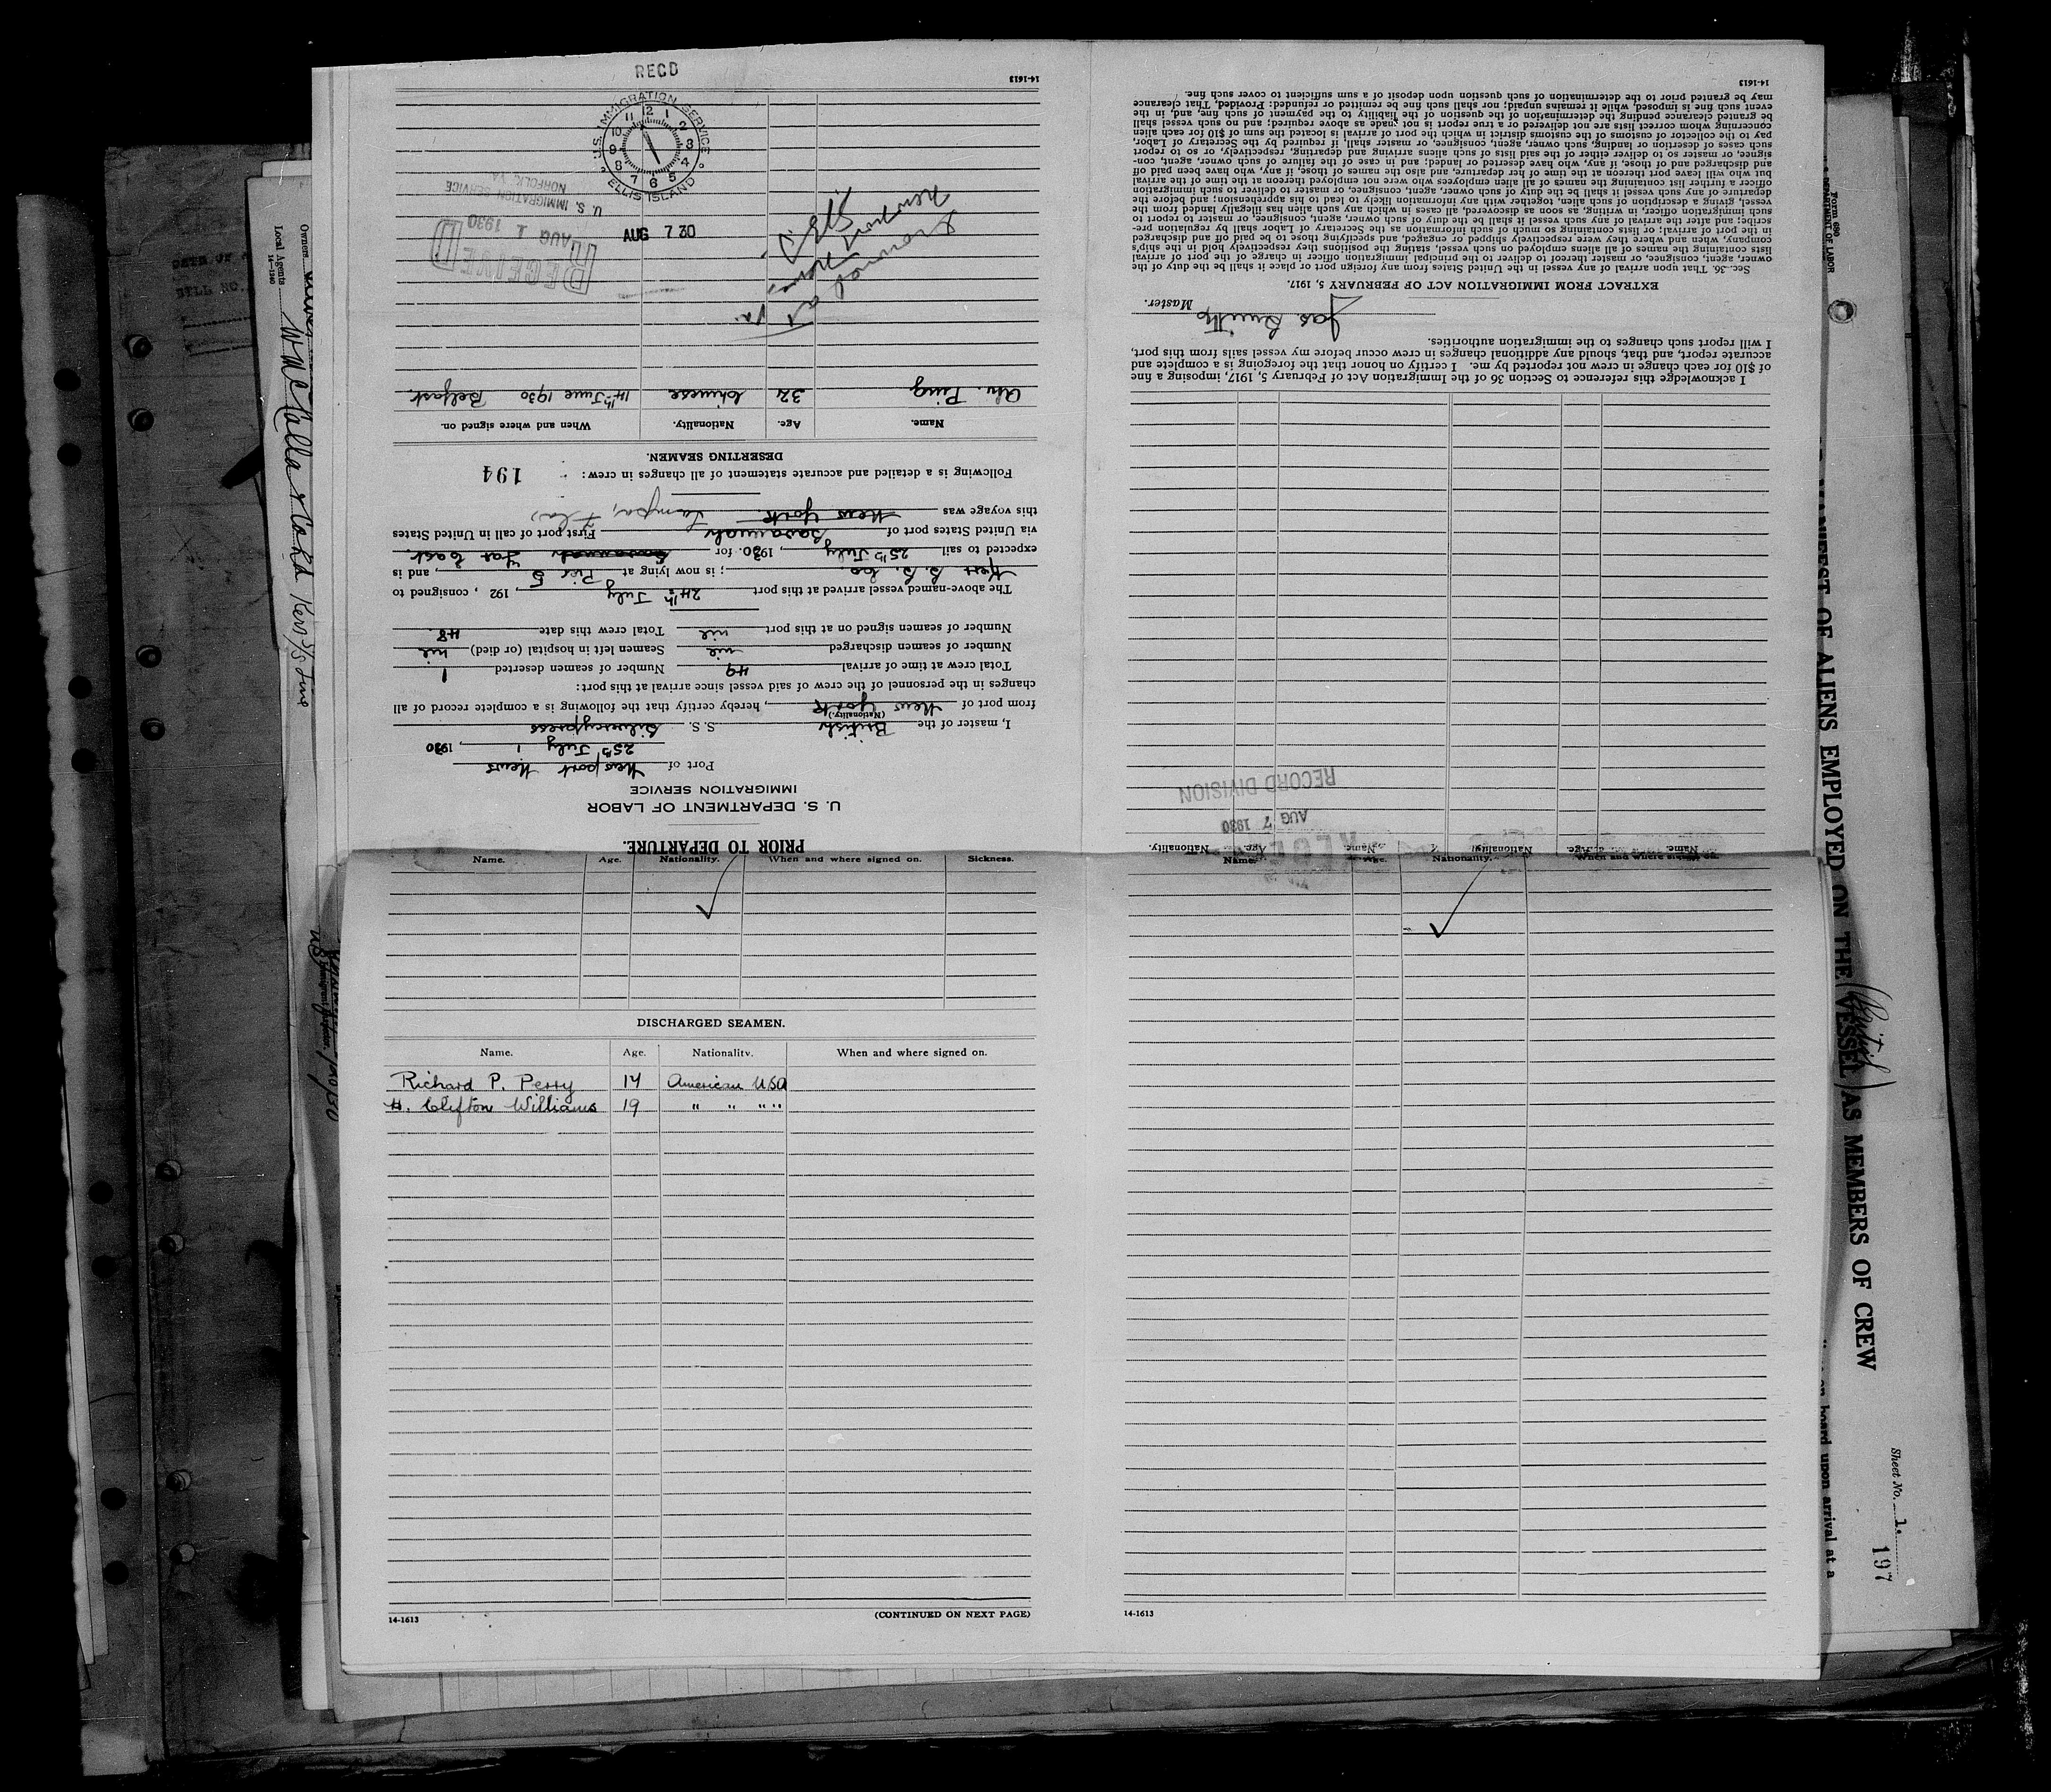 PRIOR TO DEPARTURE.
U. S. DEPARTMENT OF LABOR
IMMIGRATION SERVICE
Port of Newport News
25th July, 1930
I, master of the British S. S. Silvercypress
(Nationality.)
from port of New York, hereby certify that the following is a complete record of all
changes in the personnel of the crew of said vessel since arrival at this port:
Total crew at time of arrival 49 Number of seamen deserted 1
Number of seamen discharged nil Seamen left in hospital (or died) nil
Number of seamen signed on at this port nil Total crew this date 48.
The above-named vessel arrived at this port 24th July, 192 , consigned to
Kerr S. S. Co.; is now lying at Pier 5, and is
expected to sail 25th July, 1930. for Savannah Far East.
via United States port of Savannah First port of call in United States
this voyage was New York. Tampa, Fla,
Following is a detailed and accurate statement of all changes in crew: 194
DESERTING SEAMEN.
Name. Age. Nationality. When and where signed on.
Ah. Ping 32 Chinese 14th June 1930 Belfast.
Va.
RECEIVED
AUG 1 1930
U. S. IMMIGRATION SERVICE
NORFOLK, VA
RECD
U.S. IMMIGRATION SERVICE
ELLIS ISLAND
12 1 2 3 4 5 6 7 8 9 10 11
AUG 7 30
14-1613
Name. Age. Nationality. Name. Age. Nationality.
AUG 7 1930
RECORD DIVISION
I acknowledge this reference to Section 36 of the Immigration Act of February 5, 1917, imposing a fine
of $10 for each change in crew not reported by me. I certify on honor that the foregoing is a complete and
accurate report, and that, should any additional changes in crew occur before my vessel sails from this port,
I will report such changes to the immigration authorities.
Jas Smith
Master.
EXTRACT FROM IMMIGRATION ACT OF FEBRUARY 5, 1917.
Sec. 36. That upon arrival of any vessel in the United States from any foreign port or place it shall be the duty of the
owner, agent, consignee, or master thereof to deliver to the principal immigration officer in charge of the port of arrival
lists containing the names of all aliens employed on such vessel, stating the positions they respectively hold in the ship's
company, when and where they were respectively shipped or engaged, and specifying those to be paid off and discharged
in the port of arrival; or lists containing so much of such information as the Secretary of Labor shall by regulation pre-
scribe; and after the arrival of any such vessel it shall be the duty of such owner, agent, consignee, or master to report to
such immigration officer, in writing, as soon as discovered, all cases in which any such alien has illegally landed from the
vessel, giving a description of such alien, together with any information likely to lead to his apprehension; and before the
departure of any such vessel it shall be the duty of such owner, agent, consignee, or master to deliver to such immigration
officer a further list containing the names of all alien employees who were not employed thereon at the time of the arrival
but who will leave port thereon at the time of her departure, and also the names of those, if any, who have been paid off
and discharged and of those, if any, who have deserted or landed; and in case of the failure of such owner, agent, con-
signee, or master so to deliver either of the said lists of such aliens arriving and departing, respectively, or so to report
such cases of desertion or landing, such owner, agent, consignee, or master shall, if required by the Secretary of Labor,
pay to the collector of customs of the customs district in which the port of arrival is located the sum of $10 for each alien
concerning whom correct lists are not delivered or a true report is not made as above required; and no such vessel shall
be granted clearance pending the determination of the question of the liability to the payment of such fine, and, in the
event such fine is imposed, while it remains unpaid; nor shall such fine be remitted or refunded: Provided, That clearance
may be granted prior to the determination of such question upon deposit of a sum sufficient to cover such fine.
14-1613
Name. Age. Nationality. When and where signed on. Sickness.
DISCHARGED SEAMEN.
Name. Age. Nationality. When and where signed on.
Richard P. Perry 14 American USA
H. Clifton Williams 19 " " " "
14-1613 (CONTINUED ON NEXT PAGE)
Name. Age. Nationality. When and where signed on.
14-1613
Owners
Local Agents
14-1240
Form 680
DEPARTMENT OF LABOR
MANIFEST OF ALIENS EMPLOYED ON THE VESSEL AS MEMBERS OF CREW
(British)
on board upon arrival at a
Sheet No. 1.
197
BILL NO.